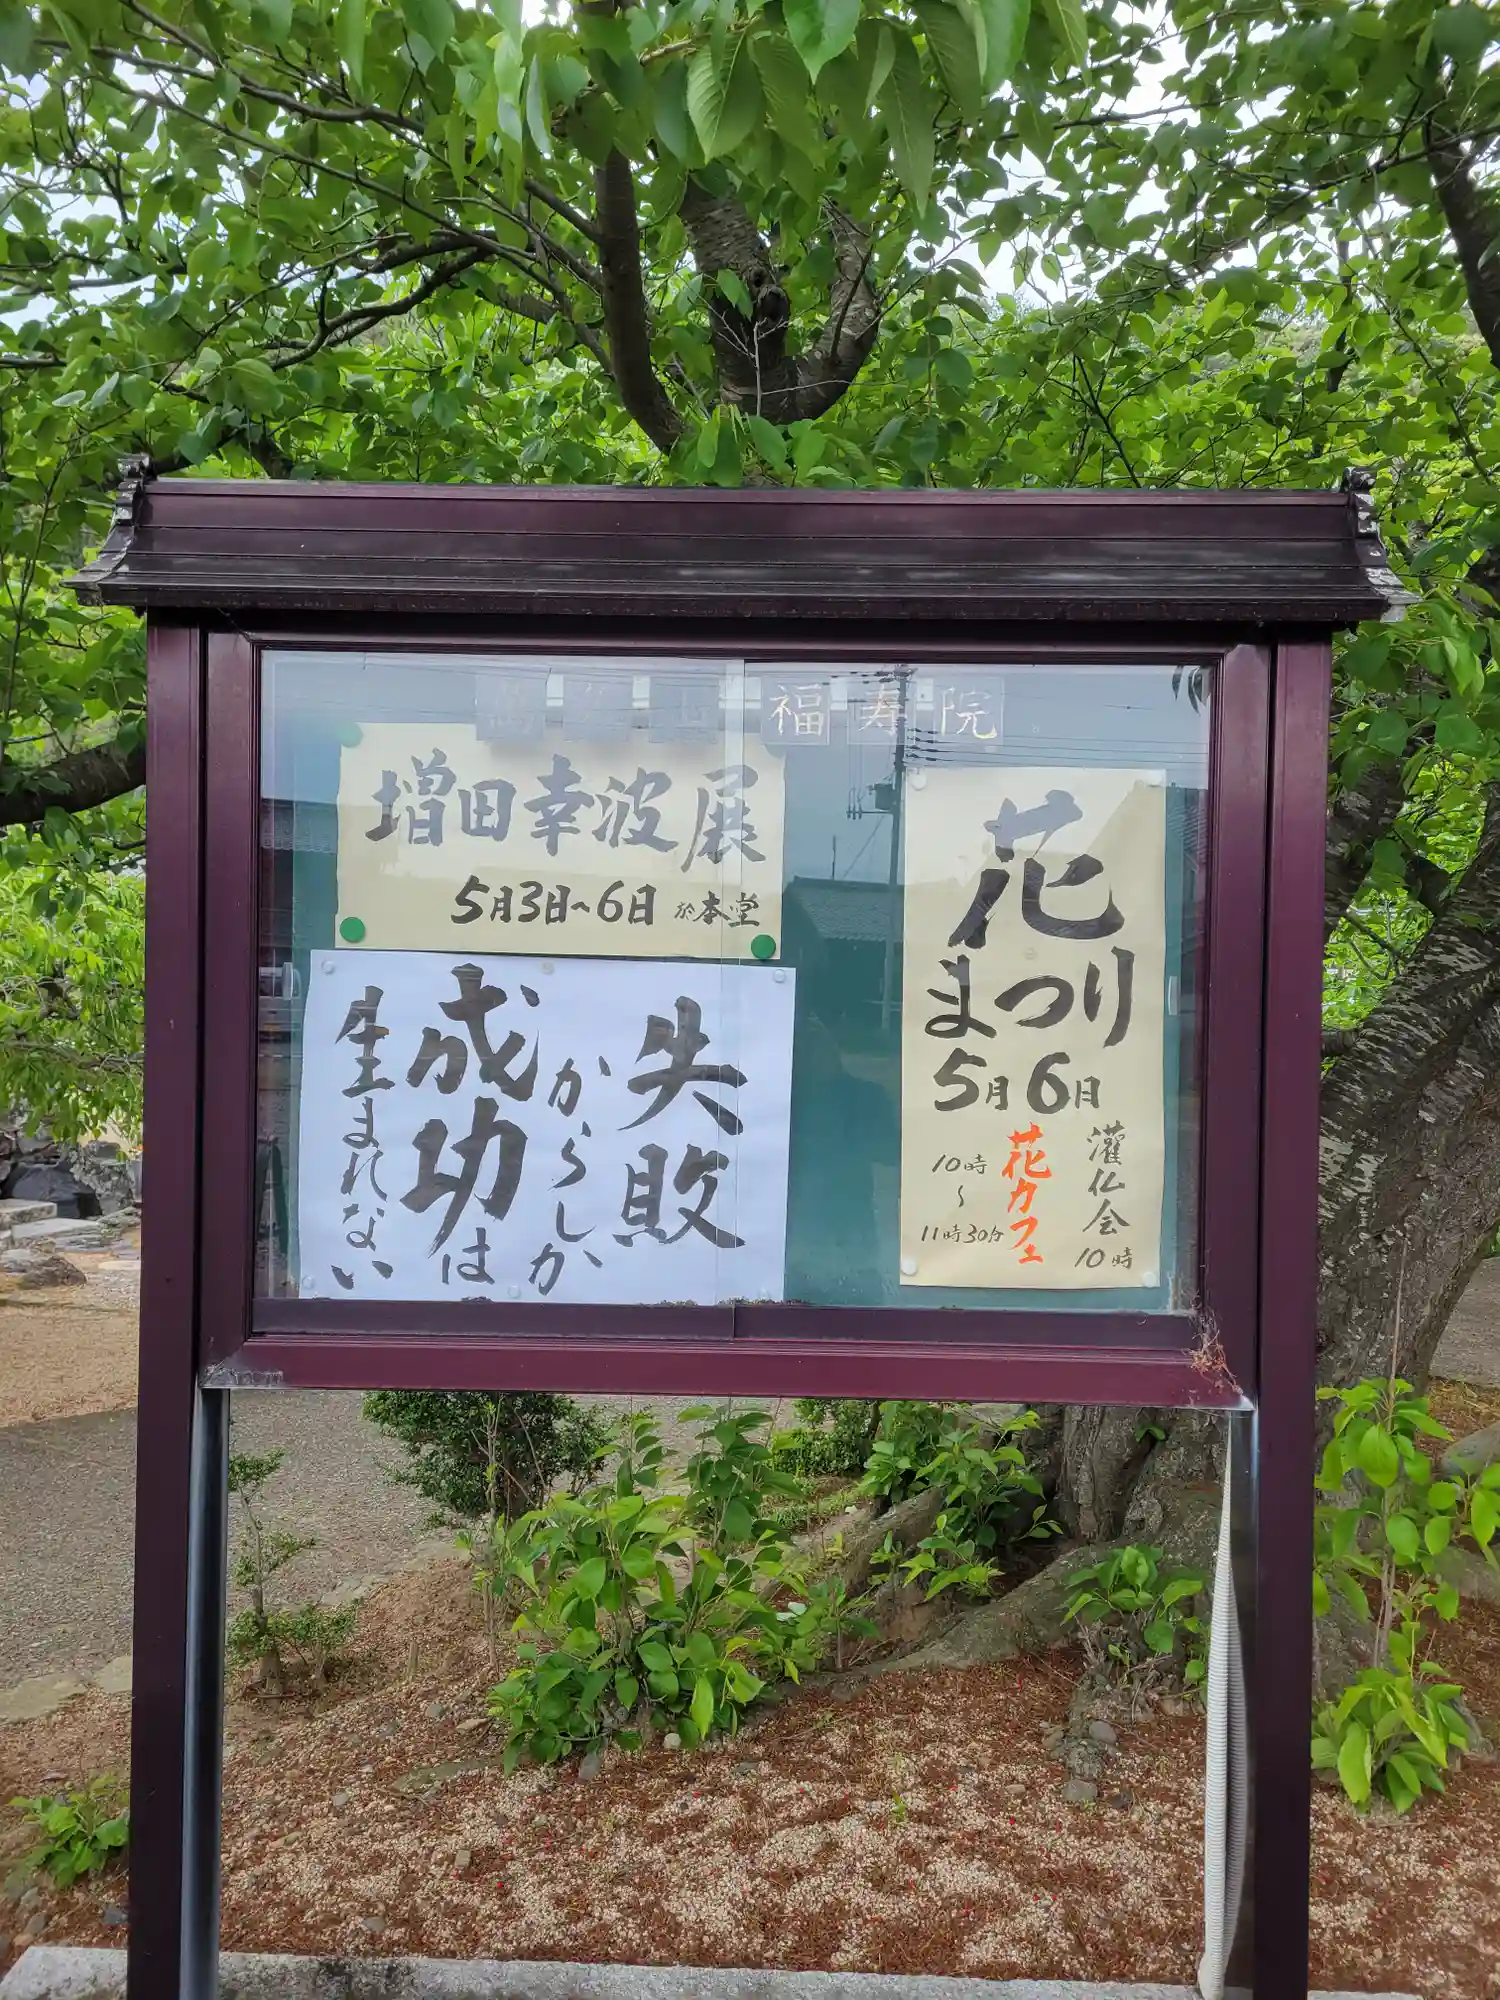 福寿院
増田幸波展
5月3日~6日 於本堂
失敗
からしか
成功は
生まれない
花まつり
5月6日
灌仏会
10時
花カフェ
10時
~
11時30分